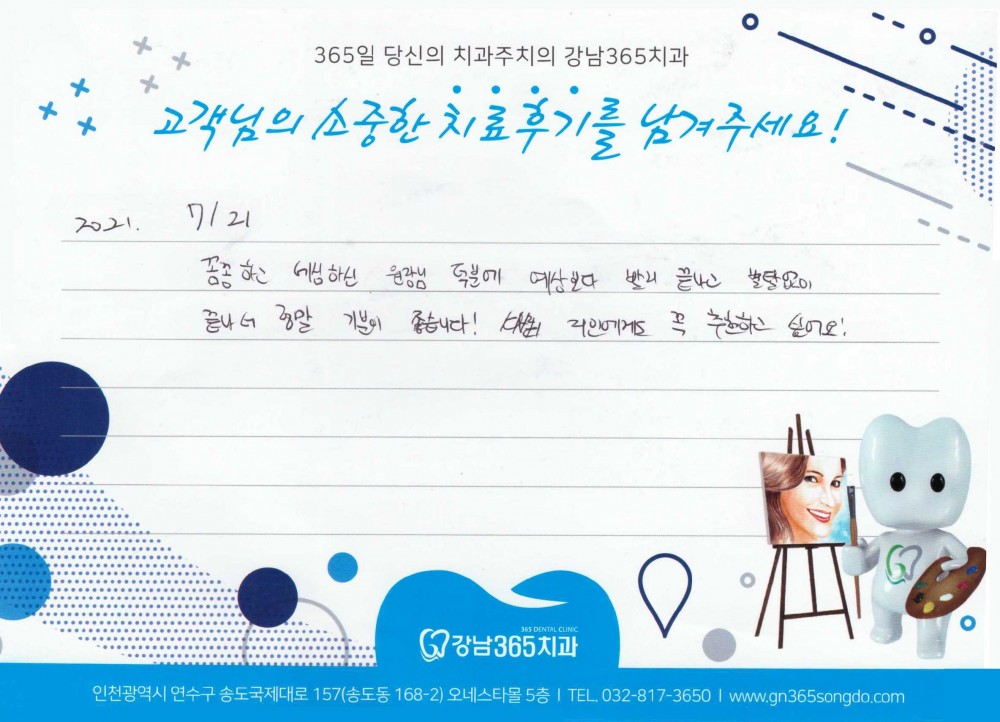 365일 당신의 치과주치의 강남365치과
고객님의 소중한 치료후기를 남겨주세요!
2021. 7/21
꼼꼼하고 세심하신 원장님 덕분에 예상보다 빨리 끝나고 불탈없이
끝나서 정말 기분이 좋습니다! 지인에게도 꼭 추천하고 싶어요!
365 DENTAL CLINIC
강남365치과
인천광역시 연수구 송도국제대로 157(송도동 168-2) 오네스타몰 5층 I TEL. 032-817-3650 I www.gn365songdo.com